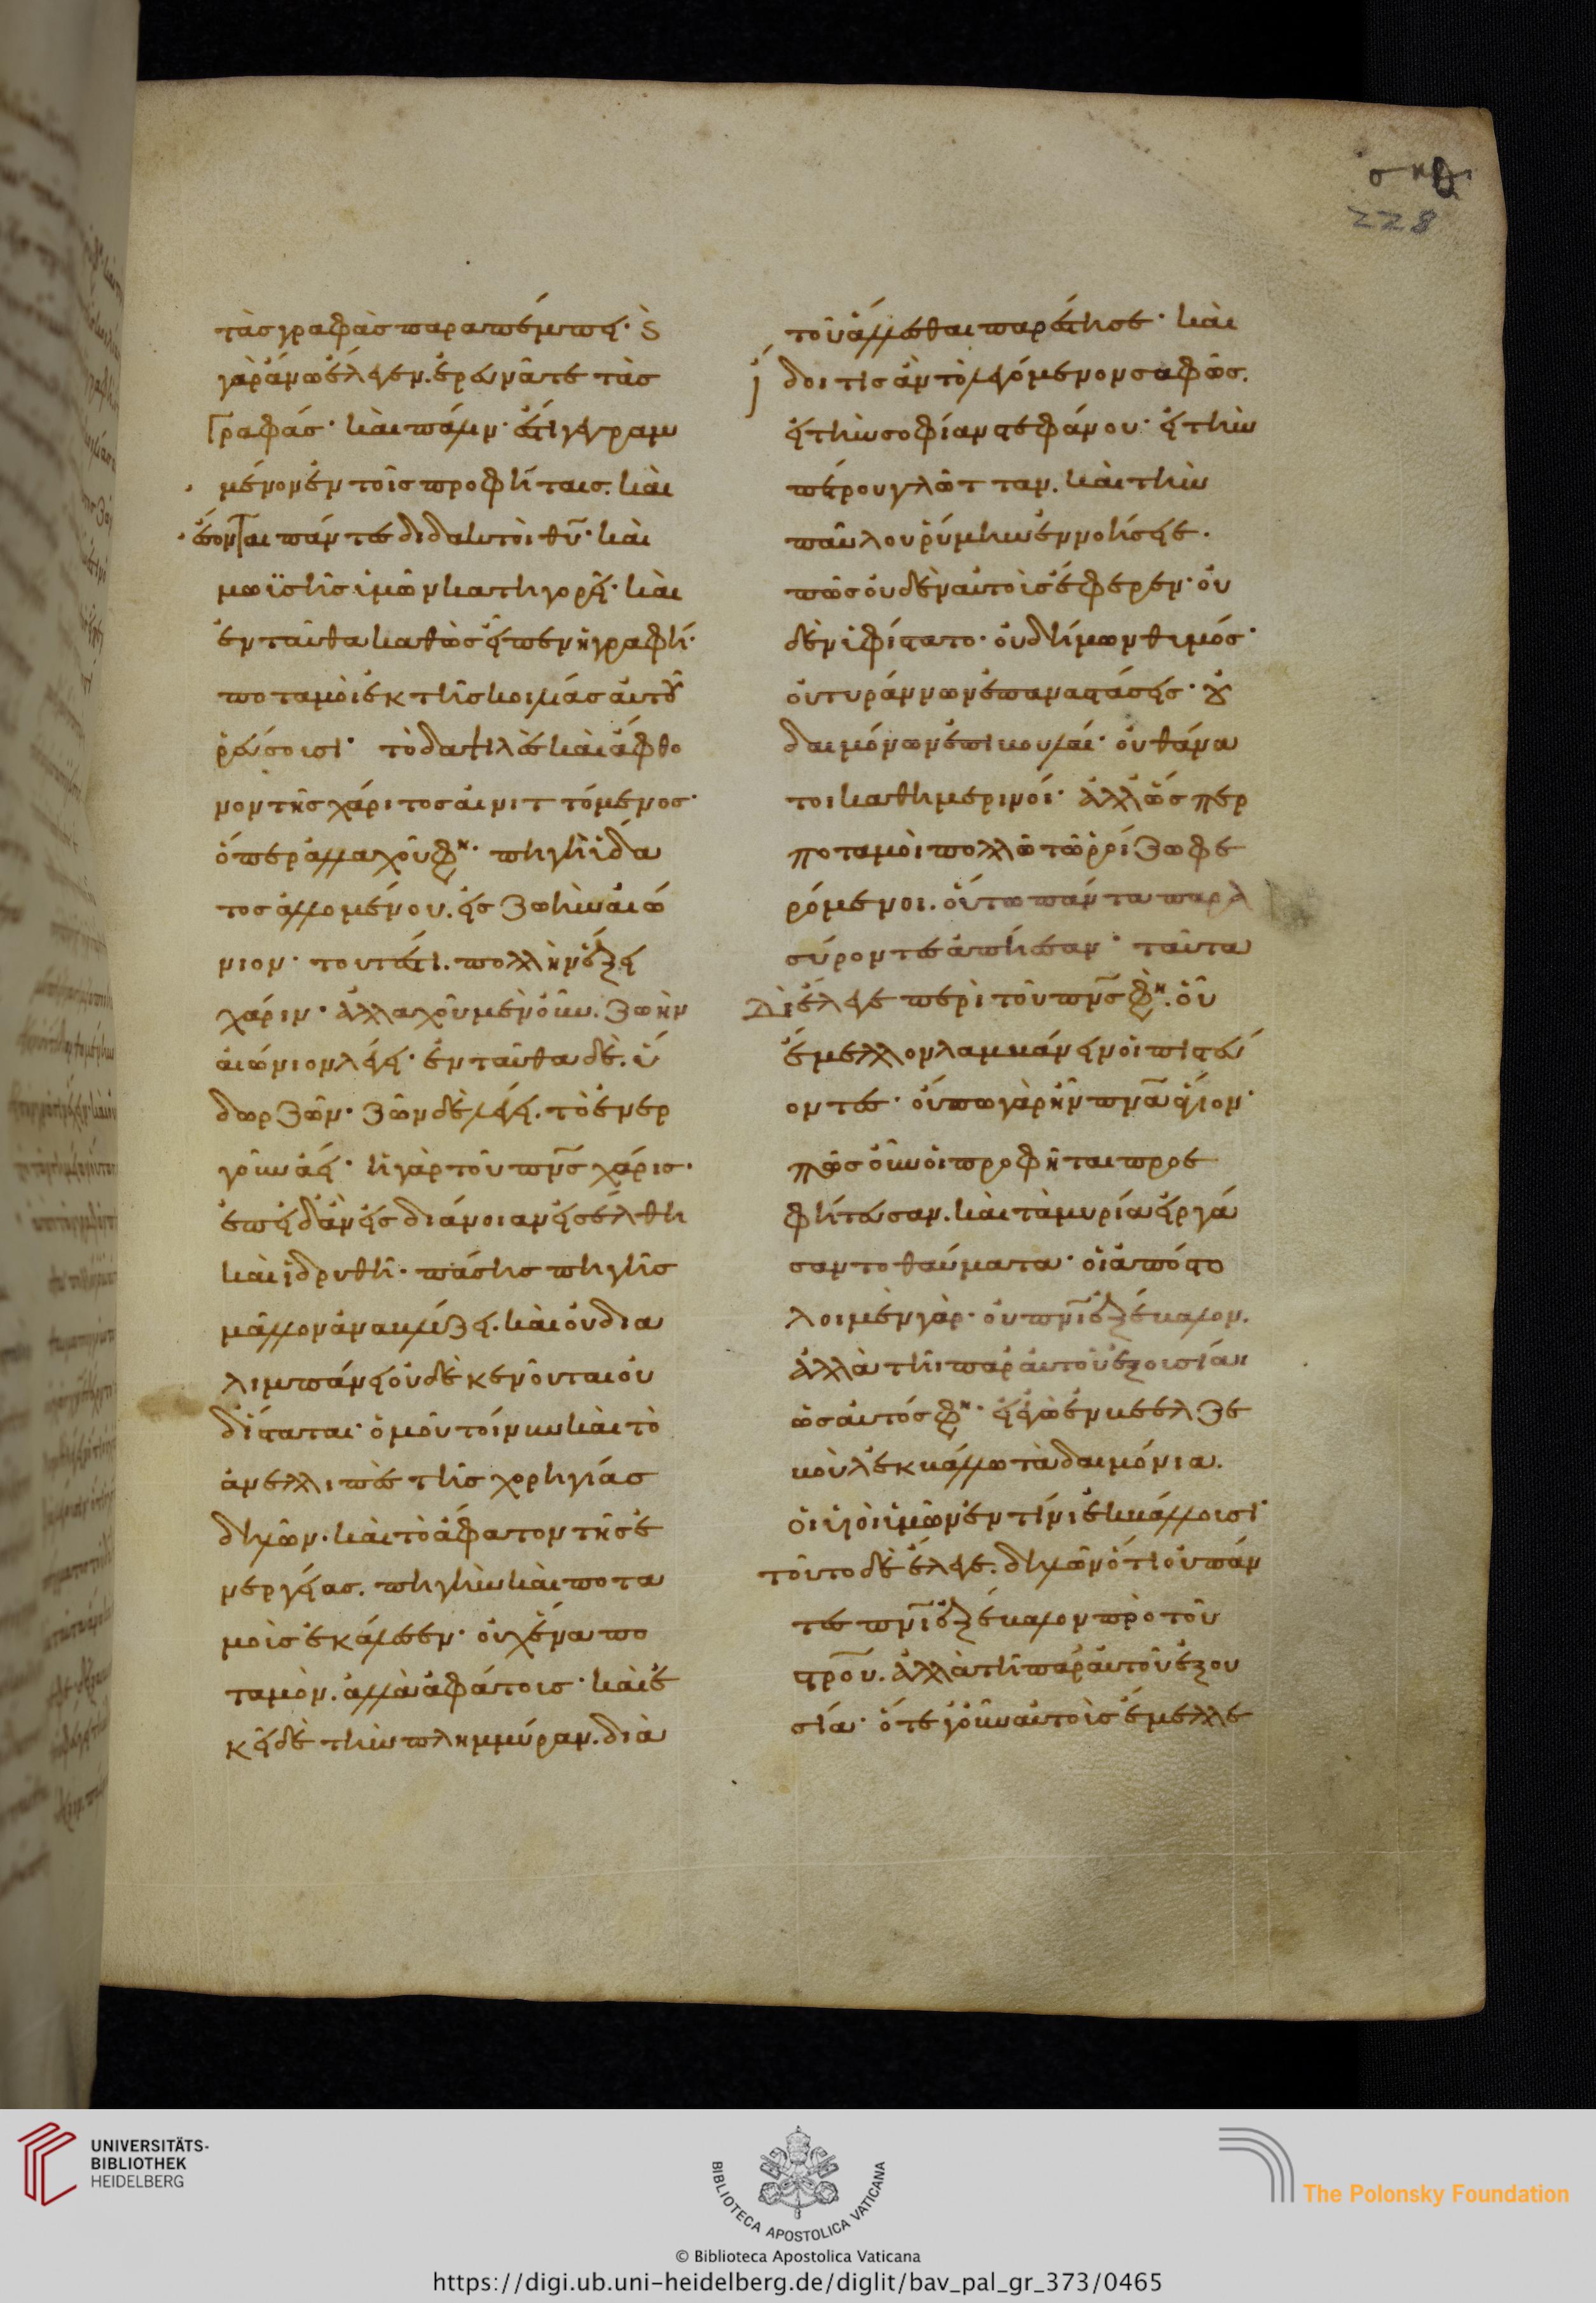 σκθ
228
τὰσ γραφὰσ παραπέμπει· καὶ
γὰρ ἄνω ἔλεγεν. ἐρευνᾶτε τὰσ
γραφάσ· καὶ πάλιν· ἐστὶ γεγραμ
μένον ἐν τοῖσ προφήταισ. καὶ
ἔσονται πάντεσ διδακτοὶ θῦ· καὶ
μωϊσῆσ ὑμῶν κατηγορεῖ· καὶ
ἐνταῦθα καθὼσ εἶπεν ἡ γραφή·
ποταμοὶ ἐκ τῆσ κοιλίασ αὐτοῦ
ῥεύσουσι· τὸ δαψιλὲσ καὶ ἄφθο
νον τῆσ χάριτοσ αἰνιττόμενοσ·
ὅπερ ἀλλαχοῦ φη· πηγὴ ὕδα
τοσ ἁλλομένου. εἰσ ζωὴν αἰώ
νιον· τουτέστι. πολλὴν ἕξει
χάριν· ἀλλαχοῦ μὲν οὖν. ζωὴν
αἰώνιον λέγει· ἐνταῦθα δὲ. ὕ
δωρ ζῶν· ζῶν δὲ λέγει. τὸ ἐνερ
γοῦν ἀεί· ἡ γὰρ τοῦ πνσ χάρισ·
ἐπειδ' ἂν εἰσ διάνοιαν εἰσέλθη
καὶ ἱδρυθῆ· πάσησ πηγῆσ
μᾶλλον ἀναβλύζει. καὶ οὐ δια
λιμπάνει οὐδὲ κενοῦται οὐ
δ' ἵσταται· ὁμοῦ τοίνυν καὶ τὸ
ἀνελλιπὲσ τῆσ χορηγίασ
δηλῶν. καὶ τὸ ἄφατον τῆσ ἐ
νεργείασ. πηγὴν καὶ ποτα
μοὺσ ἐκάλεσεν· οὐχ ἕνα πο
ταμὸν. ἀλλὰ ἀφάτουσ· καὶ ἐ
κεῖ δὲ τὴν πλημμύραν. διὰ
τοῦ ἅλλεσθαι παρέστησε· καὶ
ἴδοι τισ ἂν τὸ λεγόμενον σαφῶσ.
εἰ τὴν σοφίαν στεφάνου· εἰ τὴν
πέτρου γλῶτταν. καὶ τὴν
παύλου ῥύμην ἐννοήσειε.
πῶσ οὐδὲν αὐτοὺσ ἔφερεν· οὐ
δὲν ὑφίστατο· οὐ δήμων θυμόσ·
οὐ τυράννων ἐπαναστάσεισ· οὐ
δαιμόνων ἐπιβουλαί· οὐ θάνα
τοι καθημερινοί· ἀλλ' ὥσπερ
ποταμοὶ πολλῶ τῶ ῥοίζω φε
ρόμενοι. οὕτω πάντα παρα
σύροντεσ ἀπήεσαν· ταῦτα
δὲ ἔλεγε περὶ τοῦ πνσ φη. οὗ
ἔμελλον λαμβάνειν οἱ πιστεύ
οντεσ· οὔπω γὰρ ἦν πνα ἅγιον·
πῶσ οὖν οἱ προφῆται προε
φήτευσαν. καὶ τὰ μυρία εἰργά
σαντο θαύματα· οἱ ἀπόστο
λοι μὲν γὰρ· οὐ πνι ἐξέβαλον.
ἀλλὰ τῆ παρ' αὐτοῦ ἐξουσία
ὡσ αὐτόσ φη· εἰ ἐγὼ ἐν βεελζε
βοὺλ ἐκβάλλω τὰ δαιμόνια.
οἱ υἱοὶ ὑμῶν ἐν τίνι ἐκβάλλουσι·
τοῦτο δὲ ἔλεγε. δηλῶν ὅτι οὐ πάν
τεσ πνι ἐξέβαλον πρὸ τοῦ
στρου. ἀλλὰ τῆ παρ' αὐτοῦ ἐξου
σία· ὅτε γοῦν αὐτοὺσ ἔμελλε
UNIVERSITÄTS-
BIBLIOTHEK
HEIDELBERG
BIBLIOTECA APOSTOLICA VATICANA
The Polonsky Foundation
© Biblioteca Apostolica Vaticana
https://digi.ub.uni-heidelberg.de/diglit/bav_pal_gr_373/0465